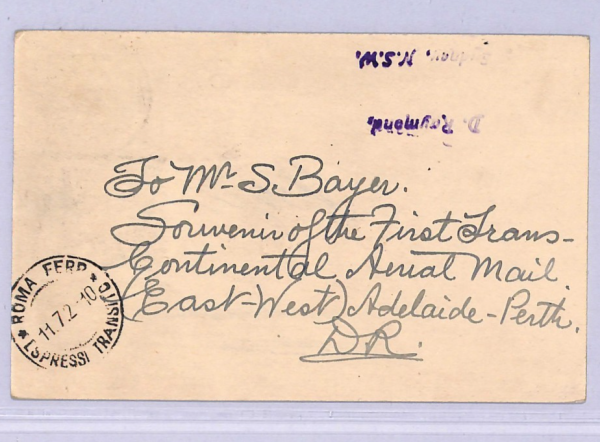 To Mr. S. Bayer.
Souvenir of the First Trans-
Continental Aerial Mail
(East-West) Adelaide-Perth.
D.R.
D. Raymond,
N.S.W.
* ROMA FERR. *
ESPRESSI TRANSIVO
11.7.2 10